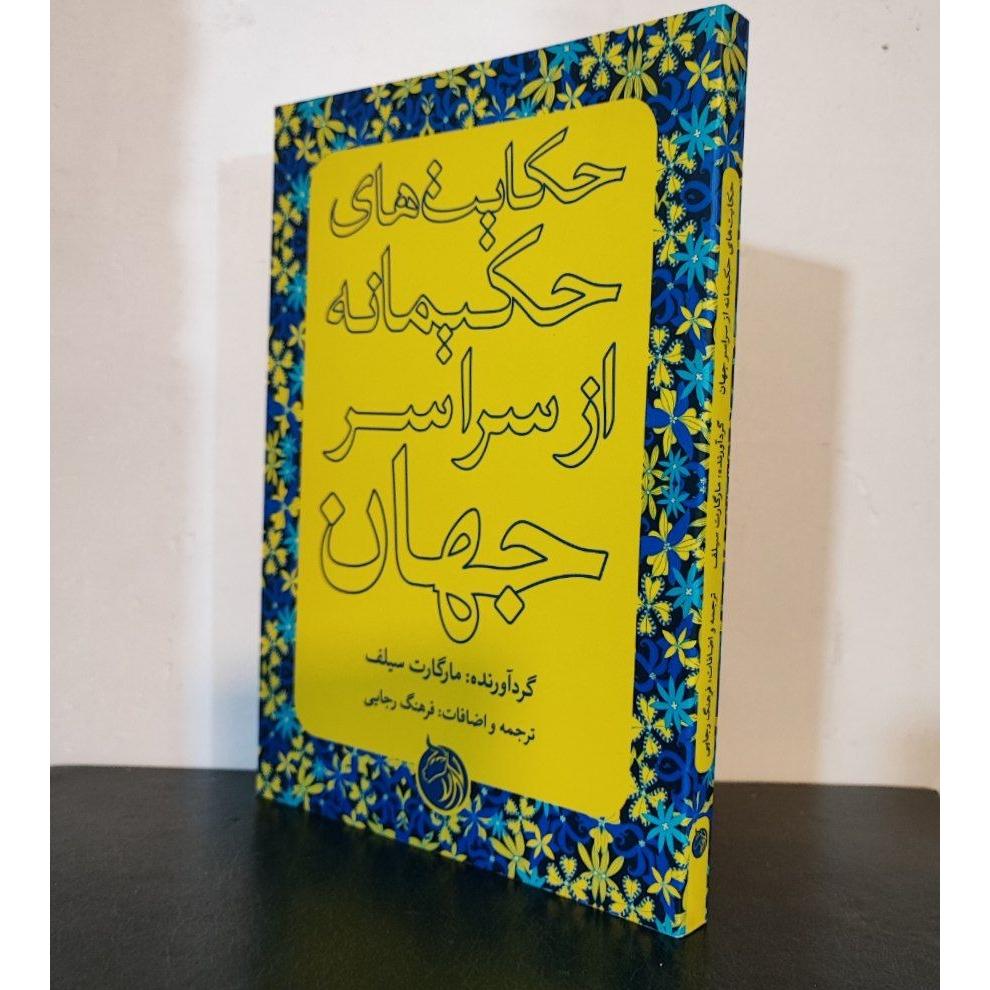 حکایت‌های
حکیمانه
از سراسر
جهان
گردآورنده: مارگارت سیلف
ترجمه و اضافات: فرهنگ رجایی
حکایت‌های حکیمانه از سراسر جهان گردآورنده: مارگارت سیلف ترجمه و اضافات: فرهنگ رجایی